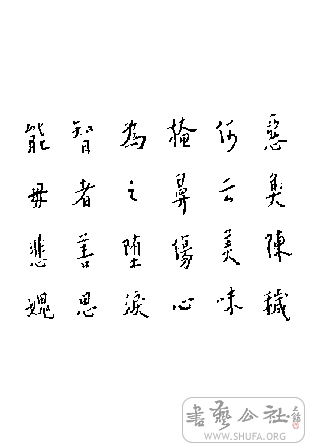 惡臭陳穢
何云美味
掩鼻傷心
為之墮淚
智者善思
能毋悲愧
書藝公社
WWW.SHUFA.ORG